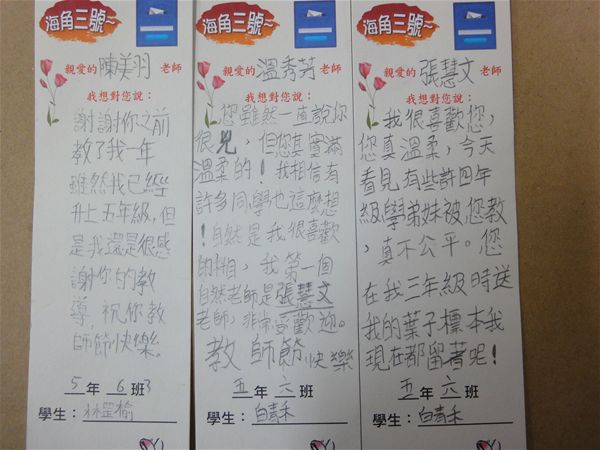 海角三號~
親愛的陳美羽老師
我想對您說：
謝謝你之前
教了我一年
雖然我已經
升上五年級，但
是我還是很感
謝你的教
導，祝你教
師節快樂。
5年6班3
學生：林罡榆
海角三號~
親愛的溫秀芳老師
我想對您說：
您雖然一直說你
很兇，但您其實滿
溫柔的！我相信有
許多同學也這麼想
！自然是我很喜歡
的科目，我第一個
自然老師是張慧文
老師，非常受歡迎。
教師節快樂
五年六班
學生：白青禾
海角三號~
親愛的張慧文老師
我想對您說：
我很喜歡您，
您真溫柔，今天
看見有些許四年
級學弟妹被您教
，真不公平。您
在我三年級時送
我的葉子標本我
現在都留著呢！
五年六班
學生：白青禾